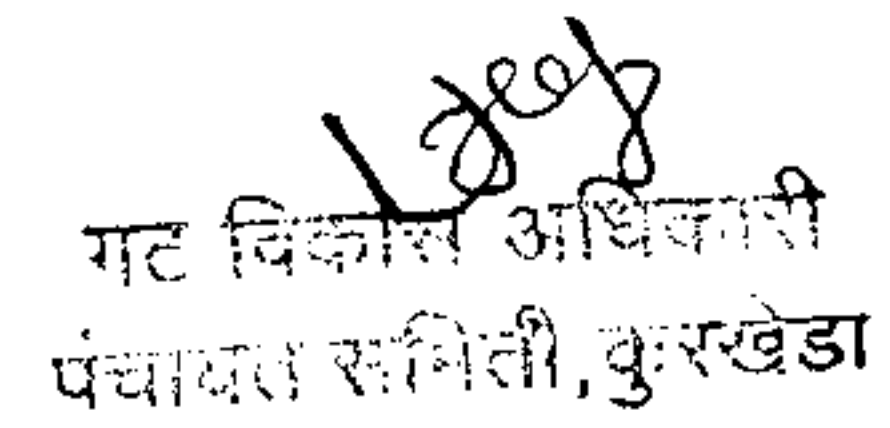 गट विकास अधिकारी
पंचायत समिती, कुरखेडा